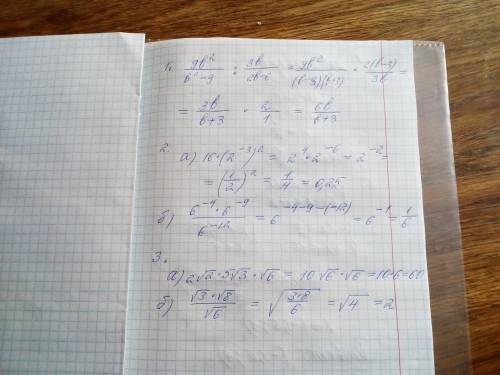 1. 9b²/(b²-9) : 3b/(2b-6) = 9b²/((b-3)(b+3)) · 2(b-3)/3b =
= 3b/(b+3) · 2/1 = 6b/(b+3)
2. а) 16·(2⁻³)² = 2⁴·2⁻⁶ = 2⁻² =
= (1/2)² = 1/4 = 0,25
б) (6⁻⁴·6⁻⁹)/6⁻¹² = 6⁻⁴⁻⁹⁻⁽⁻¹²⁾ = 6⁻¹ = 1/6
3.
а) 2√2·5√3·√6 = 10√6·√6 = 10·6 = 60
б) (√3·√8)/√6 = √(3·8/6) = √4 = 2